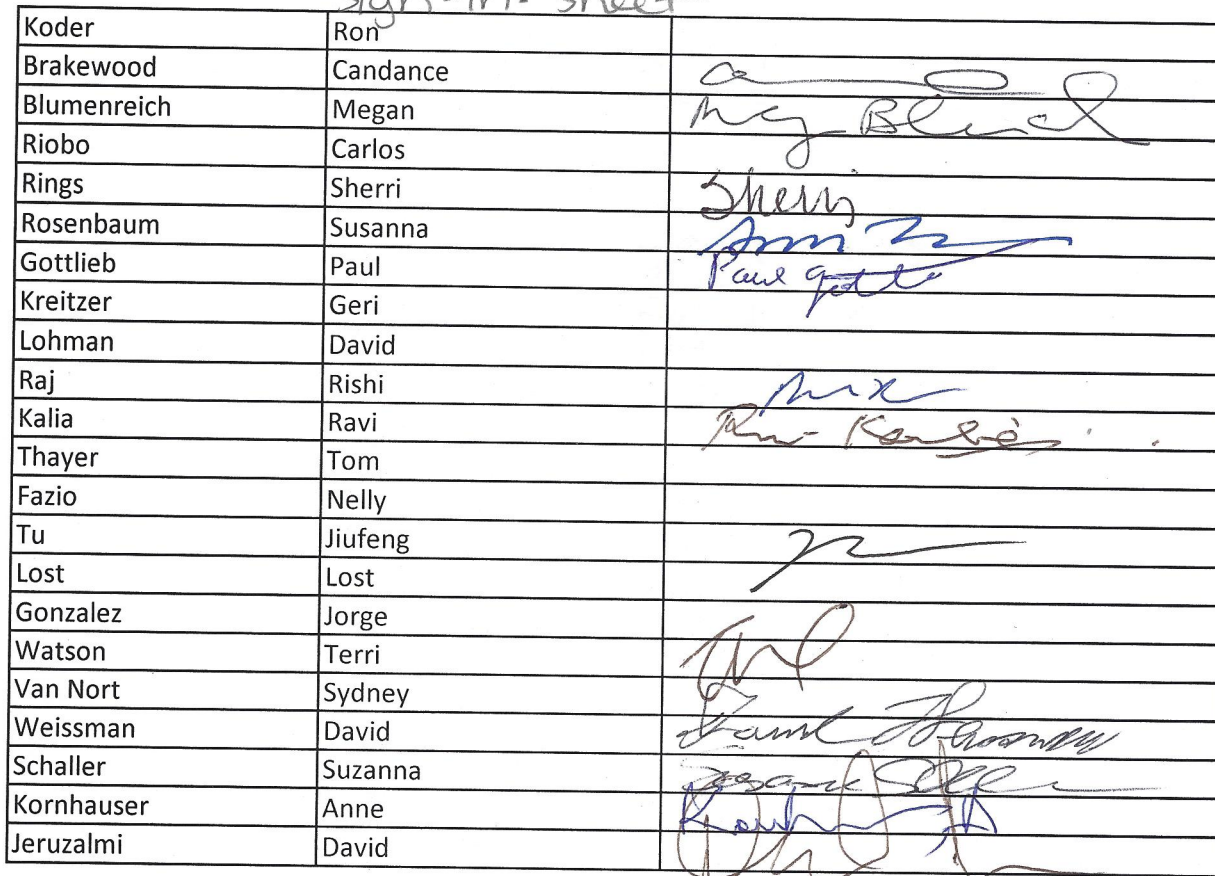 sign-in-sheet
Koder Ron
Brakewood Candance
Blumenreich Megan
Riobo Carlos
Rings Sherri Sherri
Rosenbaum Susanna
Gottlieb Paul Paul Gottl
Kreitzer Geri
Lohman David
Raj Rishi
Kalia Ravi
Thayer Tom
Fazio Nelly
Tu Jiufeng
Lost Lost
Gonzalez Jorge
Watson Terri
Van Nort Sydney
Weissman David
Schaller Suzanna
Kornhauser Anne
Jeruzalmi David